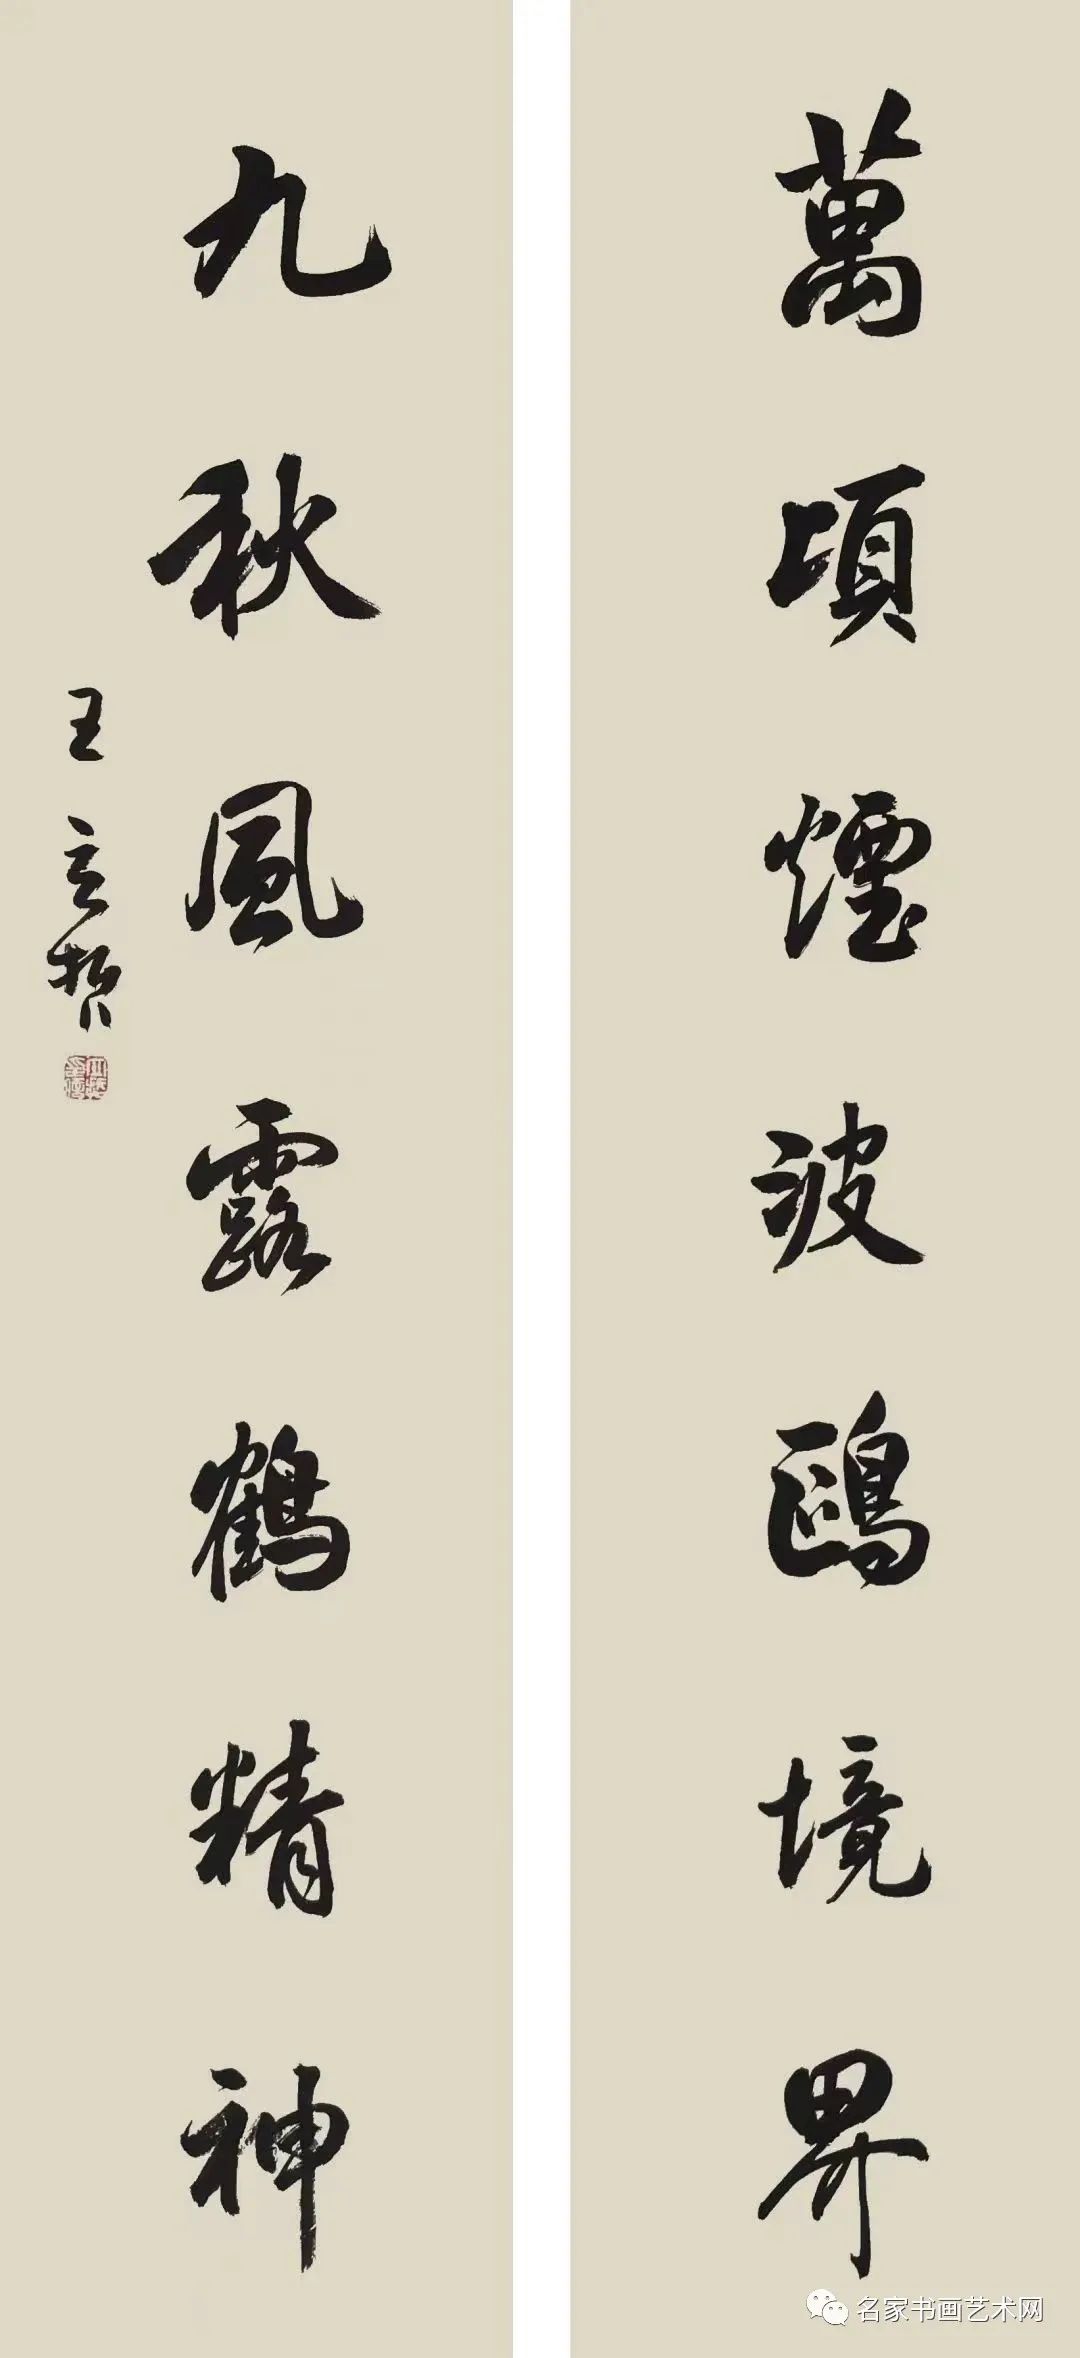 萬頃煙波鷗境界
九秋風露鶴精神
王玄哲
名家书画艺术网